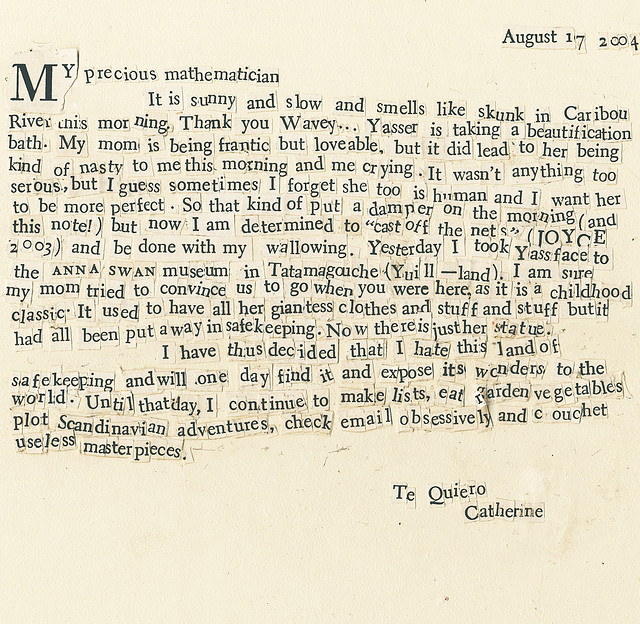 August 17 2004
MY precious mathematician
It is sunny and slow and smells like skunk in Caribou
River this morning. Thank you Wavey... Yasser is taking a beautification
bath. My mom is being frantic but loveable, but it did lead to her being
kind of nasty to me this morning and me crying. It wasn't anything too
serous, but I guess sometimes I forget she too is human and I want her
to be more perfect. So that kind of put a damper on the morning (and
this note!) but now I am determined to "cast off the nets" (JOYCE
2003) and be done with my wallowing. Yesterday I took Yassface to
the ANNA SWAN museum in Tatamagouche (Yuill—land). I am sure
my mom tried to convince us to go when you were here, as it is a childhood
classic. It used to have all her giantess clothes and stuff and stuff but it
had all been put away in safekeeping. Now there is just her statue.
I have thus decided that I hate this land of
safekeeping and will one day find it and expose its wonders to the
world. Until that day, I continue to make lists, eat garden vegetables
plot Scandinavian adventures, check email obsessively and couchet
useless masterpieces.
Te Quiero
Catherine